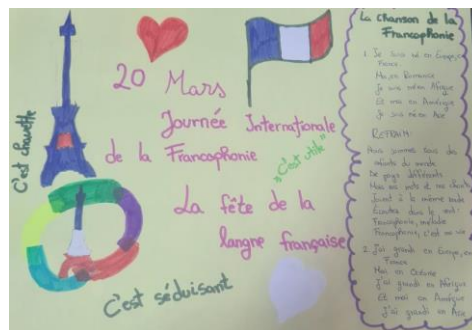 20 Mars
Journée Internationale
de la Francophonie
"C'est utile"
La fête de la
langre française
C'est chouette
C'est séduisant
La Chanson de la
Francophonie
1. Je suis né en Europe, en
France.
Moi, en Romanie
Je suis né en Afrique
Et moi en Amérique
Je suis né en Asie
REFRAIN:
Nous sommes tous des
enfants du monde
De pays différents
Mais nos mots et nos chants
Jouent à la même ronde
Écoutez dans le vent:
Francophonie, mélodie
Francophonie, c'est ma vie
2. J'ai grandi en Europe, en
France
Moi, en Océanie
J'ai grandi en Afrique
Et moi en Amérique
J'ai grandi en Asie